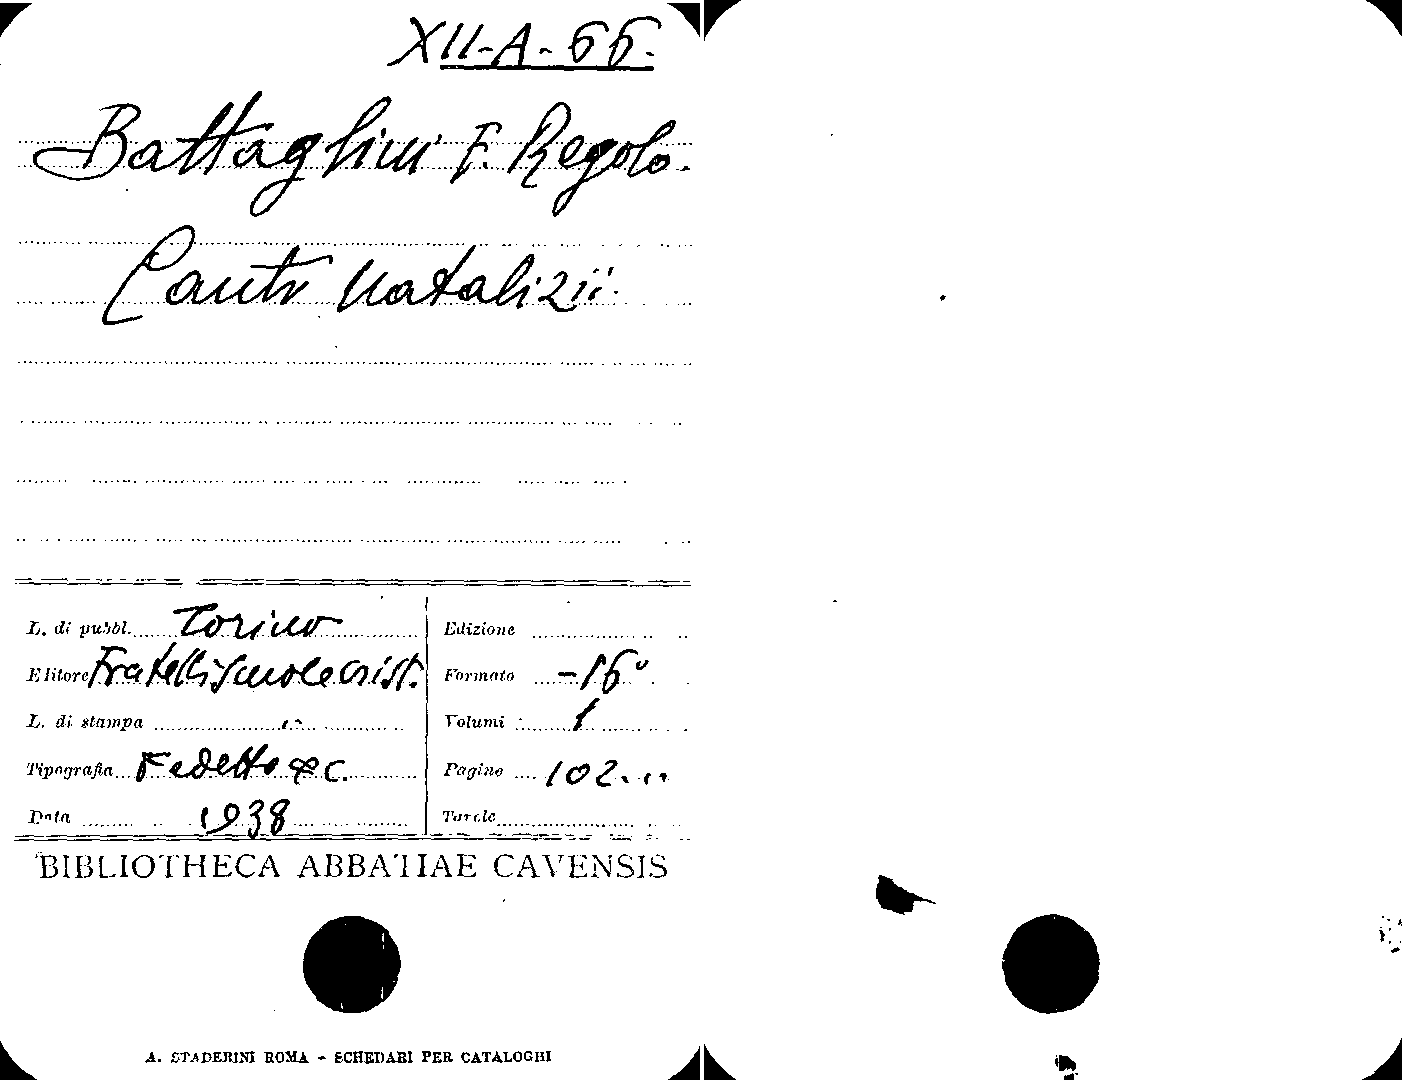 XII-A-66.
Battaglini F. Regolo.
Canti natalizii.
L. di pubbl. Torino
Editore Fratelli Scuole Crist.
L. di stampa "
Tipografia Fedetto & C.
Data 1938
Edizione
Formato -16°
Volumi 1
Pagine 102. "
Tavole
BIBLIOTHECA ABBATIAE CAVENSIS
A. STADERINI ROMA - SCHEDARI PER CATALOGHI